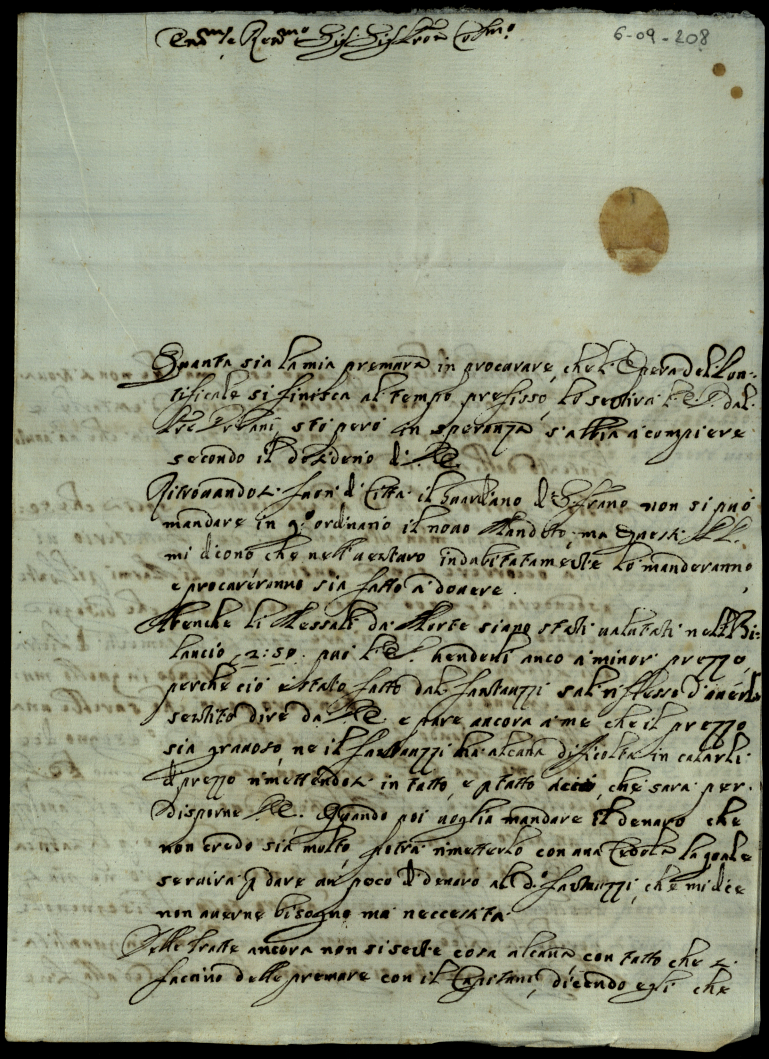 Em.mo e Rev.mo Sig.r Sig.r Pron Col.mo
6-09-208
Quanta sia la mia premura in procurare, che l'Opera del Pon-
tificale si finisca al tempo prefisso, lo sentirà V.E. dal
Urbani, stò però in speranza s'abbia à compiere
secondo il desiderio di V.E.
Ritrovandosi fuori di Città il Guardiano non si può
mandare in q.o ordinario il novo Mandato, ma questi PP.
mi dicono che nell'venturo indubitatamente lo manderanno
e procureranno sia fatto à dovere.
Benche li Messali da Morte siano stati valutati nell Bi-
lancio 2:50. può V.E. venderli anco à minor prezzo,
perche ciò è stato fatto dal Fantuzzi sul riflesso d'averli
sentito dire da V.E. e pare ancora à me che il prezzo
sia gravoso, ne il Fantuzzi hà alcuna dificoltà in calarli
di prezzo rimettendosi in tutto, e p tutto à ciò, che sarà per
disporne V.E. Quando poi voglia mandare il denaro che
non credo sia molto, potrà rimetterlo con una Cedola la quale
servirà p dare un poco di denaro al d.o Fantuzzi, che mi dice
non averne bisogno mà neccessità.
Delle tratte ancora non si sente cosa alcuna con tutto che si
faccino delle premure con il Capitani, dicendo egli che